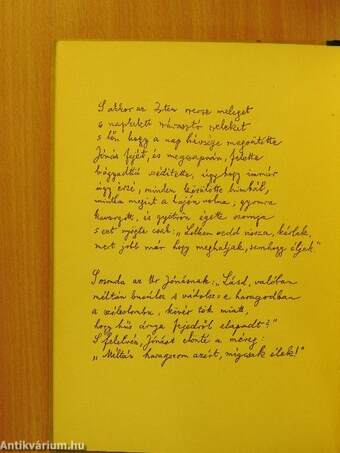 S akkor az Isten szerze meleget
s napkeleti szárasztó szeleket
s lőn hogy a nap hévsége megsütötte
Jónás fejét, és megcsapván, felette
bágyadttá szédítette, úgy hogy immár
úgy érzé, minden körülötte himbál,
mintha megint a hajón volna, gyomra
kavargott, és gyötrőn égette szomja
s ezt nyögte csak: „Lelkem vedd vissza, kérlek,
mert jobb már hogy meghaljak, semhogy éljek"
S monda az Ur Jónásnak: „Lásd, valóban
méltán busúlsz s vádolsz-e haragodban
a széleslombu, kövér tök miatt,
hogy hűs árnya fejedről elapadt?"
S felelvén, Jónást elönté a méreg:
„Méltán haragszom azért, mígcsak élek!"
Antikvárium.hu